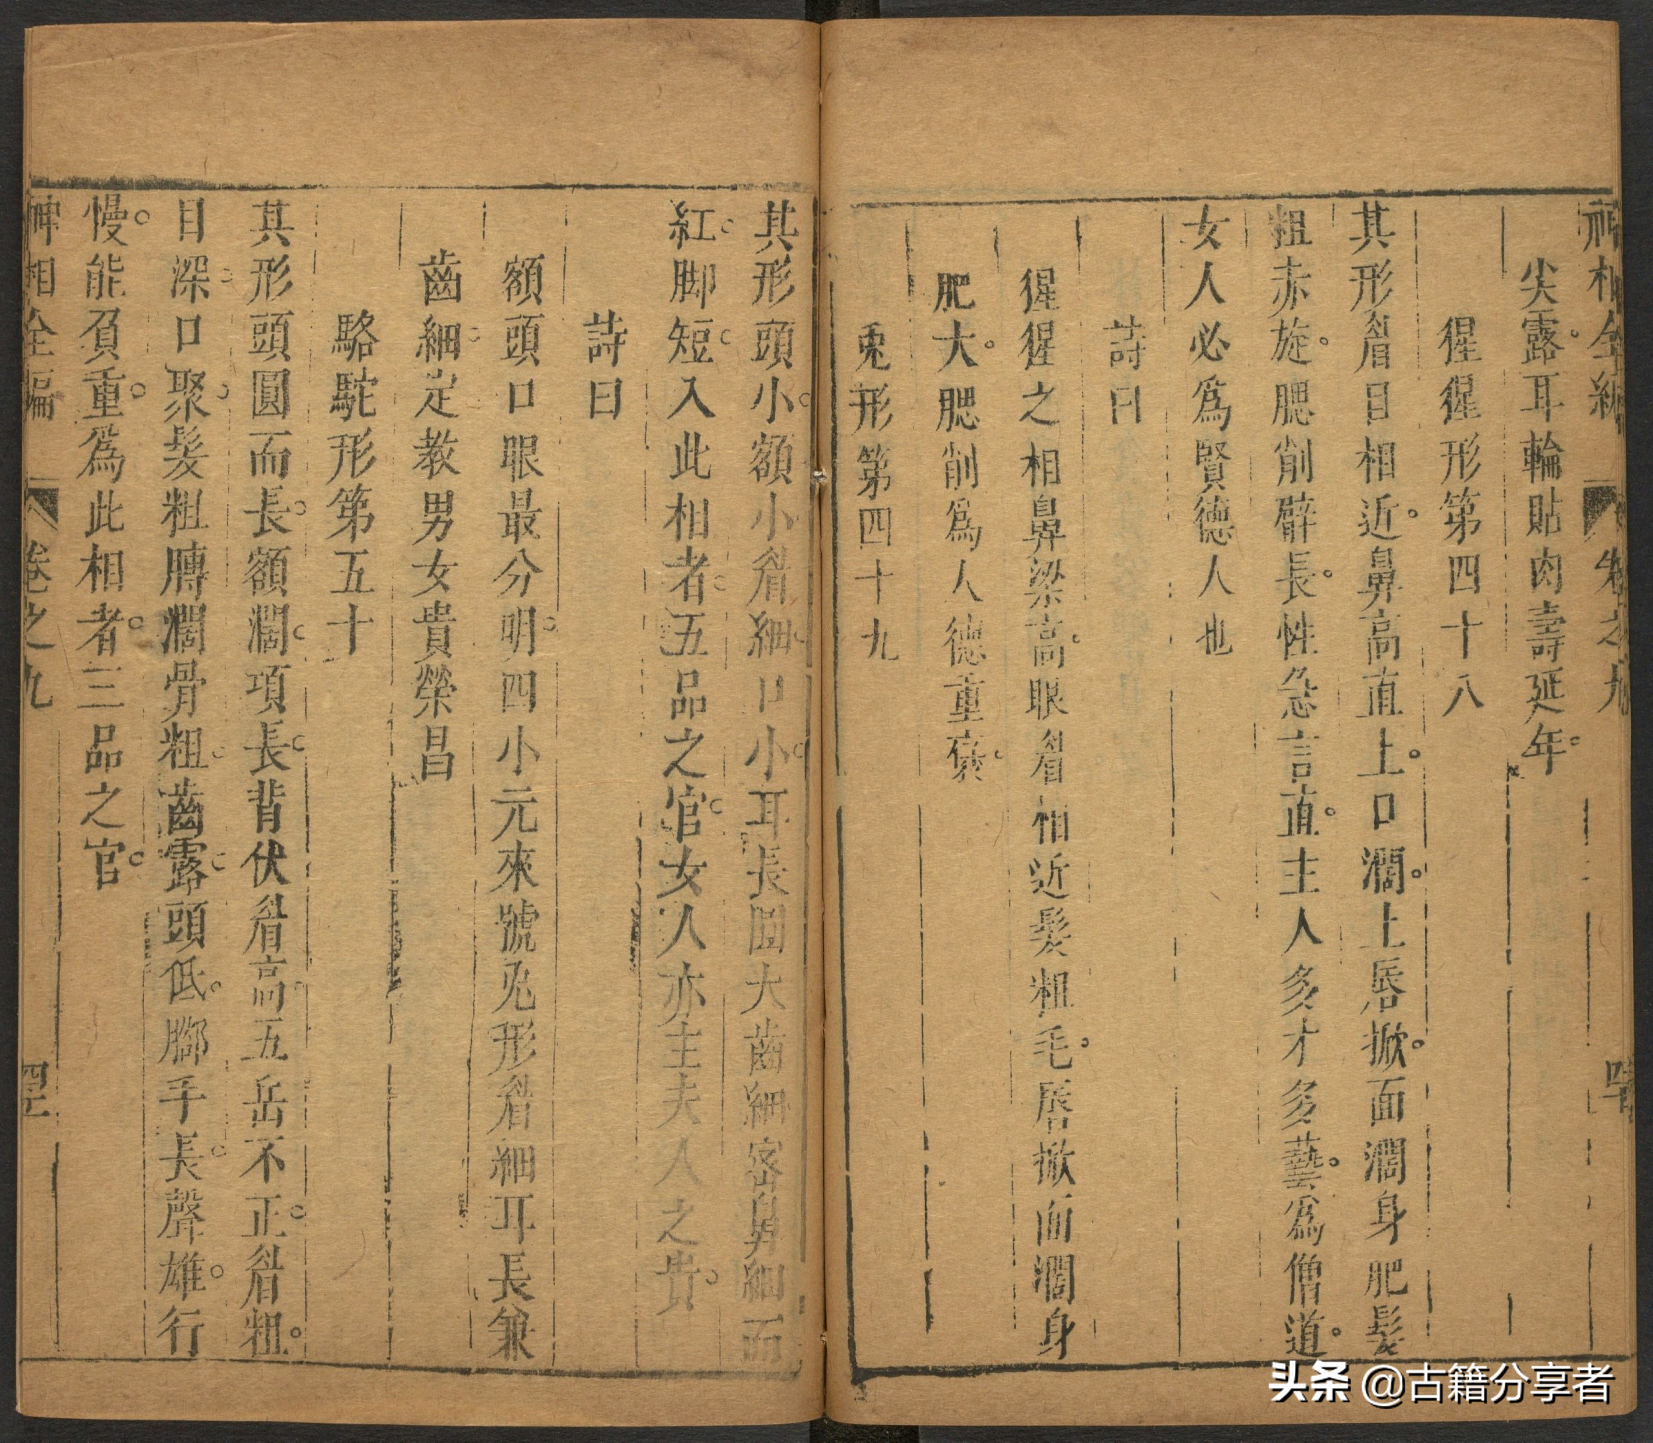 神相全編 卷之九
尖露耳輪貼肉壽延年
猩猩形第四十八
其形眉目相近鼻高直上口濶上唇掀面濶身肥髮
粗赤旋腮削臂長性急言直主人多才多藝為僧道
女人必為賢德人也
詩曰
猩猩之相鼻梁高眼眉相近髮粗毛唇掀面濶身
肥大腮削為人德重襃
兎形第四十九
其形頭小額小眉細口小耳長圓大齒細密鼻細面
紅脚短入此相者五品之官女人亦主夫人之貴
詩曰
額頭口眼最分明四小元來號兎形眉細耳長兼
齒細定教男女貴榮昌
駱駝形第五十
其形頭圓而長額濶項長背伏眉高五岳不正眉粗
目深口聚髮粗膊濶骨粗齒露頭低脚手長聲雄行
慢能負重為此相者三品之官
神相全編 卷之九
头条 @古籍分享者